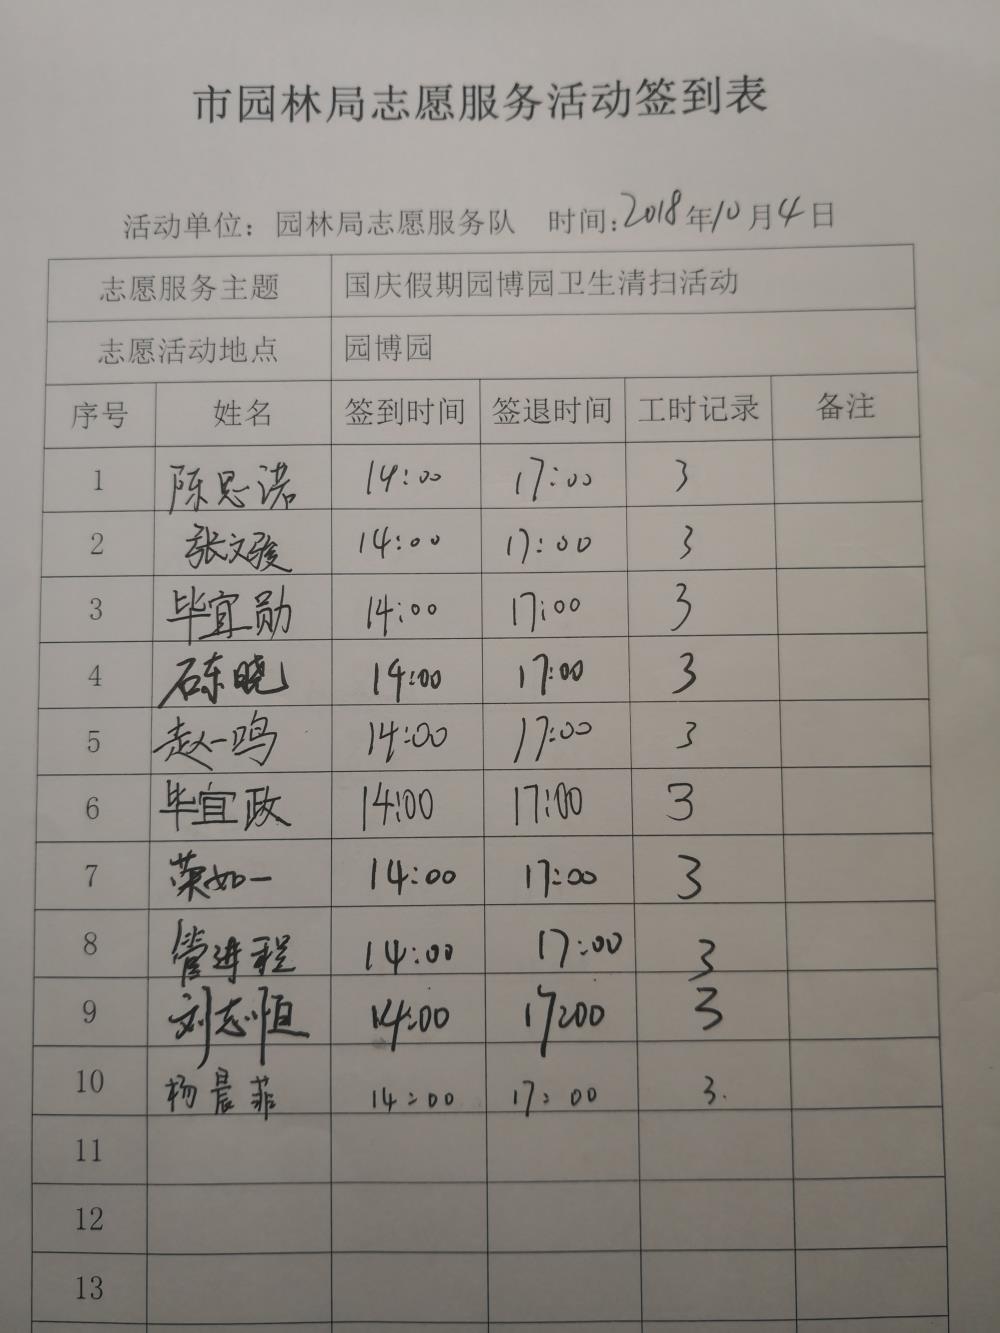 市园林局志愿服务活动签到表
活动单位：园林局志愿服务队 时间：2018年10月4日
志愿服务主题 国庆假期园博园卫生清扫活动
志愿活动地点 园博园
序号 姓名 签到时间 签退时间 工时记录 备注
1 陈思诺 14:00 17:00 3
2 张文骏 14:00 17:00 3
3 毕宜勋 14:00 17:00 3
4 石东晓 14:00 17:00 3
5 赵一鸣 14:00 17:00 3
6 毕宜政 14:00 17:00 3
7 荣如一 14:00 17:00 3
8 管进程 14:00 17:00 3
9 刘志恒 14:00 17:00 3
10 杨晨菲 14:00 17:00 3.
11
12
13